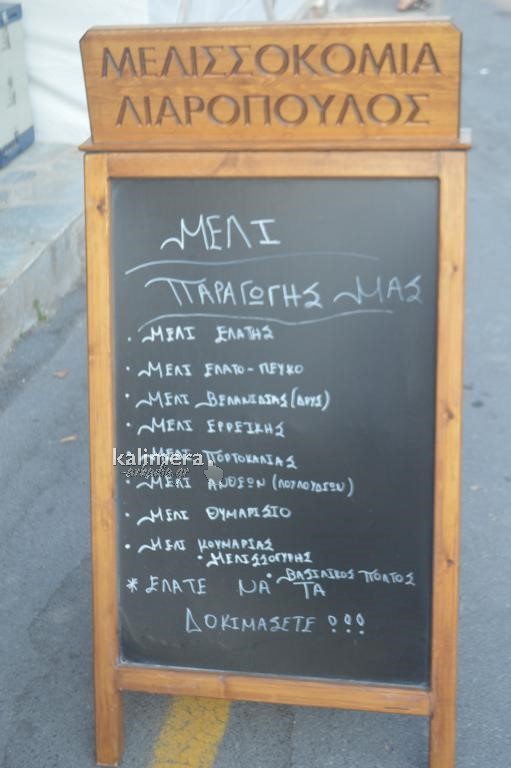 ΜΕΛΙΣΣΟΚΟΜΙΑ
ΛΙΑΡΟΠΟΥΛΟΣ
ΜΕΛΙ
ΠΑΡΑΓΩΓΗΣ ΜΑΣ
· ΜΕΛΙ ΕΛΑΤΗΣ
· ΜΕΛΙ ΕΛΑΤΟ-ΠΕΥΚΟ
· ΜΕΛΙ ΒΕΛΑΝΙΔΙΑΣ (ΔΡΥΣ)
· ΜΕΛΙ ΕΡΕΙΚΗΣ
· ΜΕΛΙ ΠΟΡΤΟΚΑΛΙΑΣ
kalimera
-arkadia.gr
· ΜΕΛΙ ΑΝΘΕΩΝ (ΛΟΥΛΟΥΔΙΩΝ)
· ΜΕΛΙ ΘΥΜΑΡΙΣΙΟ
· ΜΕΛΙ ΚΟΥΜΑΡΙΑΣ
· ΜΕΛΙΣΣΟΓΥΡΗΣ
· ΒΑΣΙΛΙΚΟΣ ΠΟΛΤΟΣ
* ΕΛΑΤΕ ΝΑ ΤΑ
ΔΟΚΙΜΑΣΕΤΕ !!!